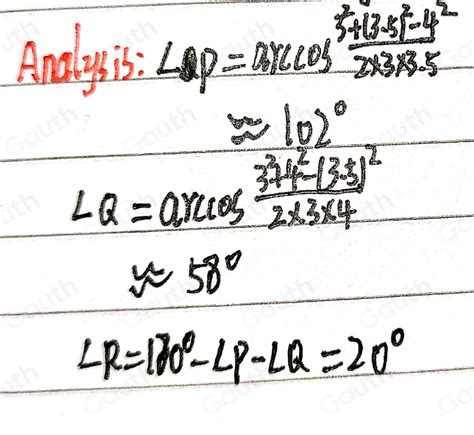 Analysis: ∠P = arccos (3²+(3.5)²-4²)/(2×3×3.5)
≈ 102°
∠Q = arccos (3²+4²-(3.5)²)/(2×3×4)
≈ 58°
∠R=180°-∠P-∠Q=20°